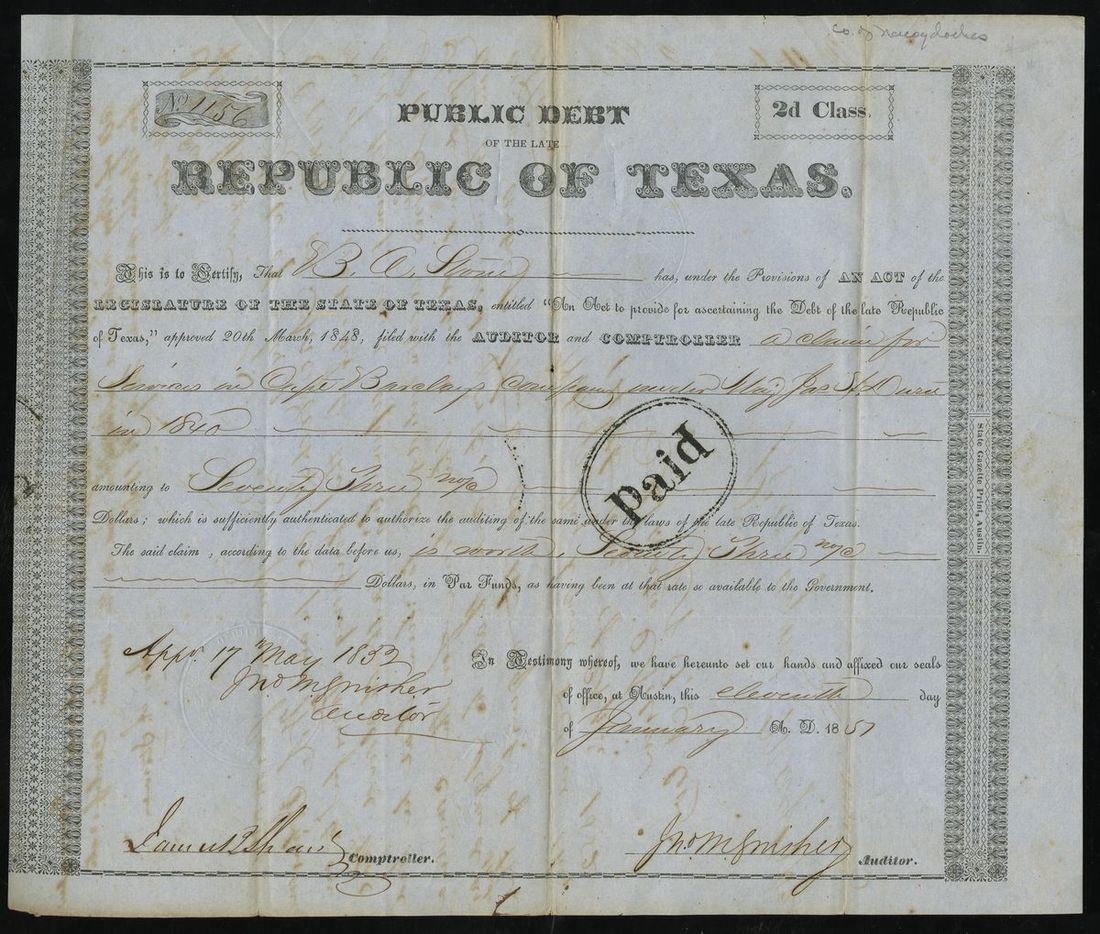 Co. of Nacogdoches
No 1156
2d Class.
PUBLIC DEBT
OF THE LATE
REPUBLIC OF TEXAS.
This is to Certify, That B. A. Stone has, under the Provisions of AN ACT of the
LEGISLATURE OF THE STATE OF TEXAS, entitled "An Act to provide for ascertaining the Debt of the late Republic
of Texas," approved 20th March, 1848, filed with the AUDITOR and COMPTROLLER a claim for
Services in Capt Barclays company under Maj Jas
in 1840
amounting to Seventy Three no/c
Dollars; which is sufficiently authenticated to authorize the auditing of the same under the laws of the late Republic of Texas.
The said claim, according to the data before us, is worth, Seventy Three no/c
Dollars, in Par Funds, as having been at that rate so available to the Government.
Paid
State Gazette Print, Austin.
Appr. 17 May 1852
Jno M Swisher
Auditor
In Testimony whereof, we have hereunto set our hands and affixed our seals
of office, at Austin, this eleventh day
of January A. D. 1851
James B Shaw Comptroller.
Jno M Swisher Auditor.